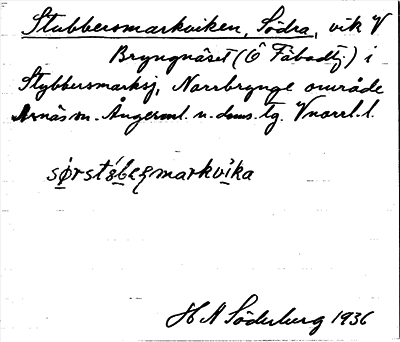 Stubbersmarkviken, Södra, vik V
Bryngnäset (Ö Fäbodtj.) i
Stybbersmarksj, Norrbrynge område
Arnäs sn. Ångerml. n. doms. tg. Vnorrl. l.
sørstəbəʂmarkvika
H N Söderberg 1936